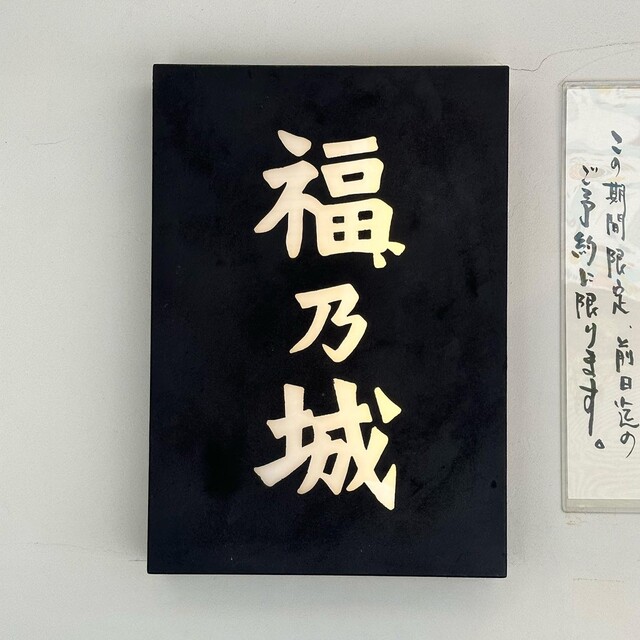 福乃城
この期間限定、前日迄の
ご予約に限ります。